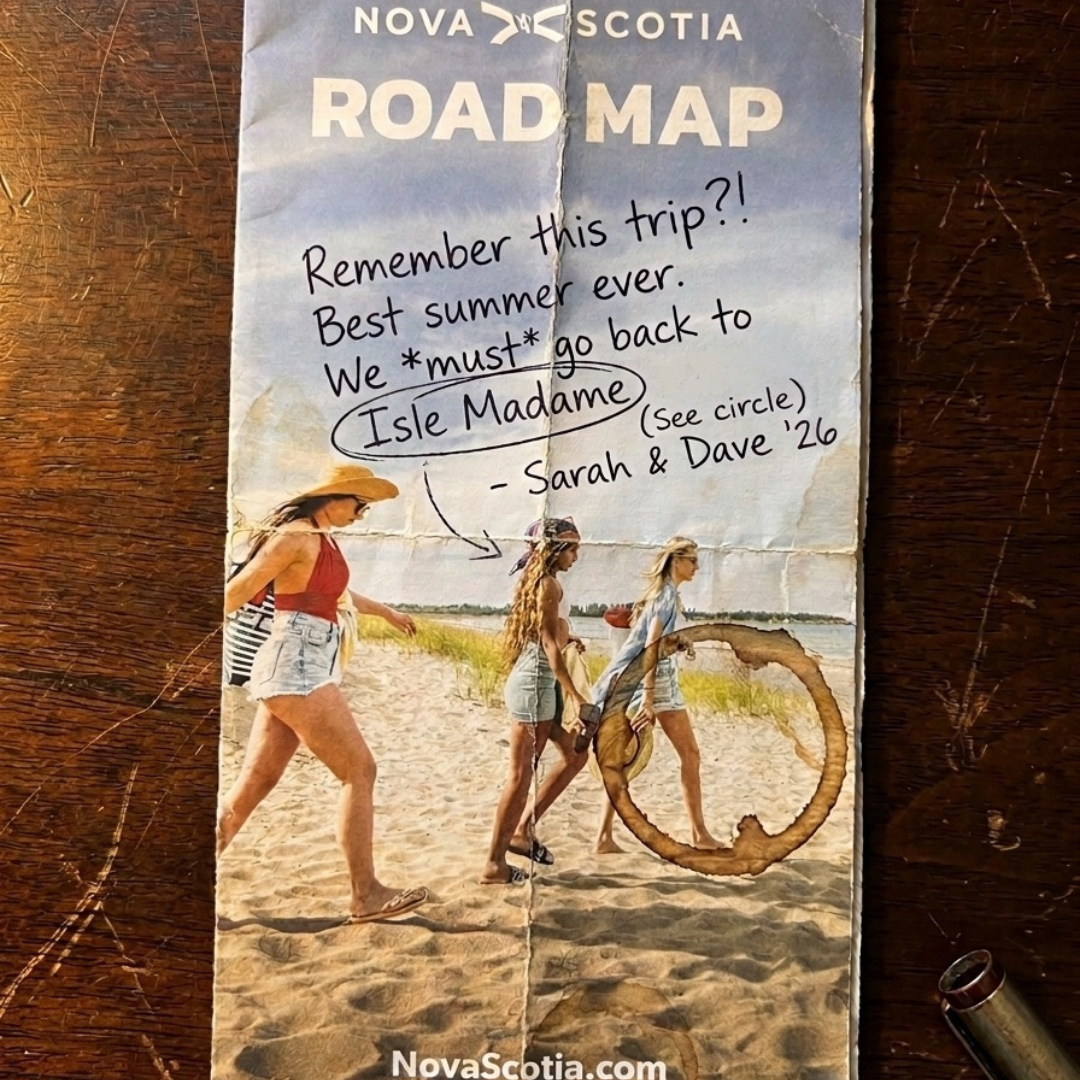 NOVA SCOTIA
ROAD MAP
Remember this trip?!
Best summer ever.
We *must* go back to
Isle Madame
(See circle)
- Sarah & Dave '26
NovaScotia.com